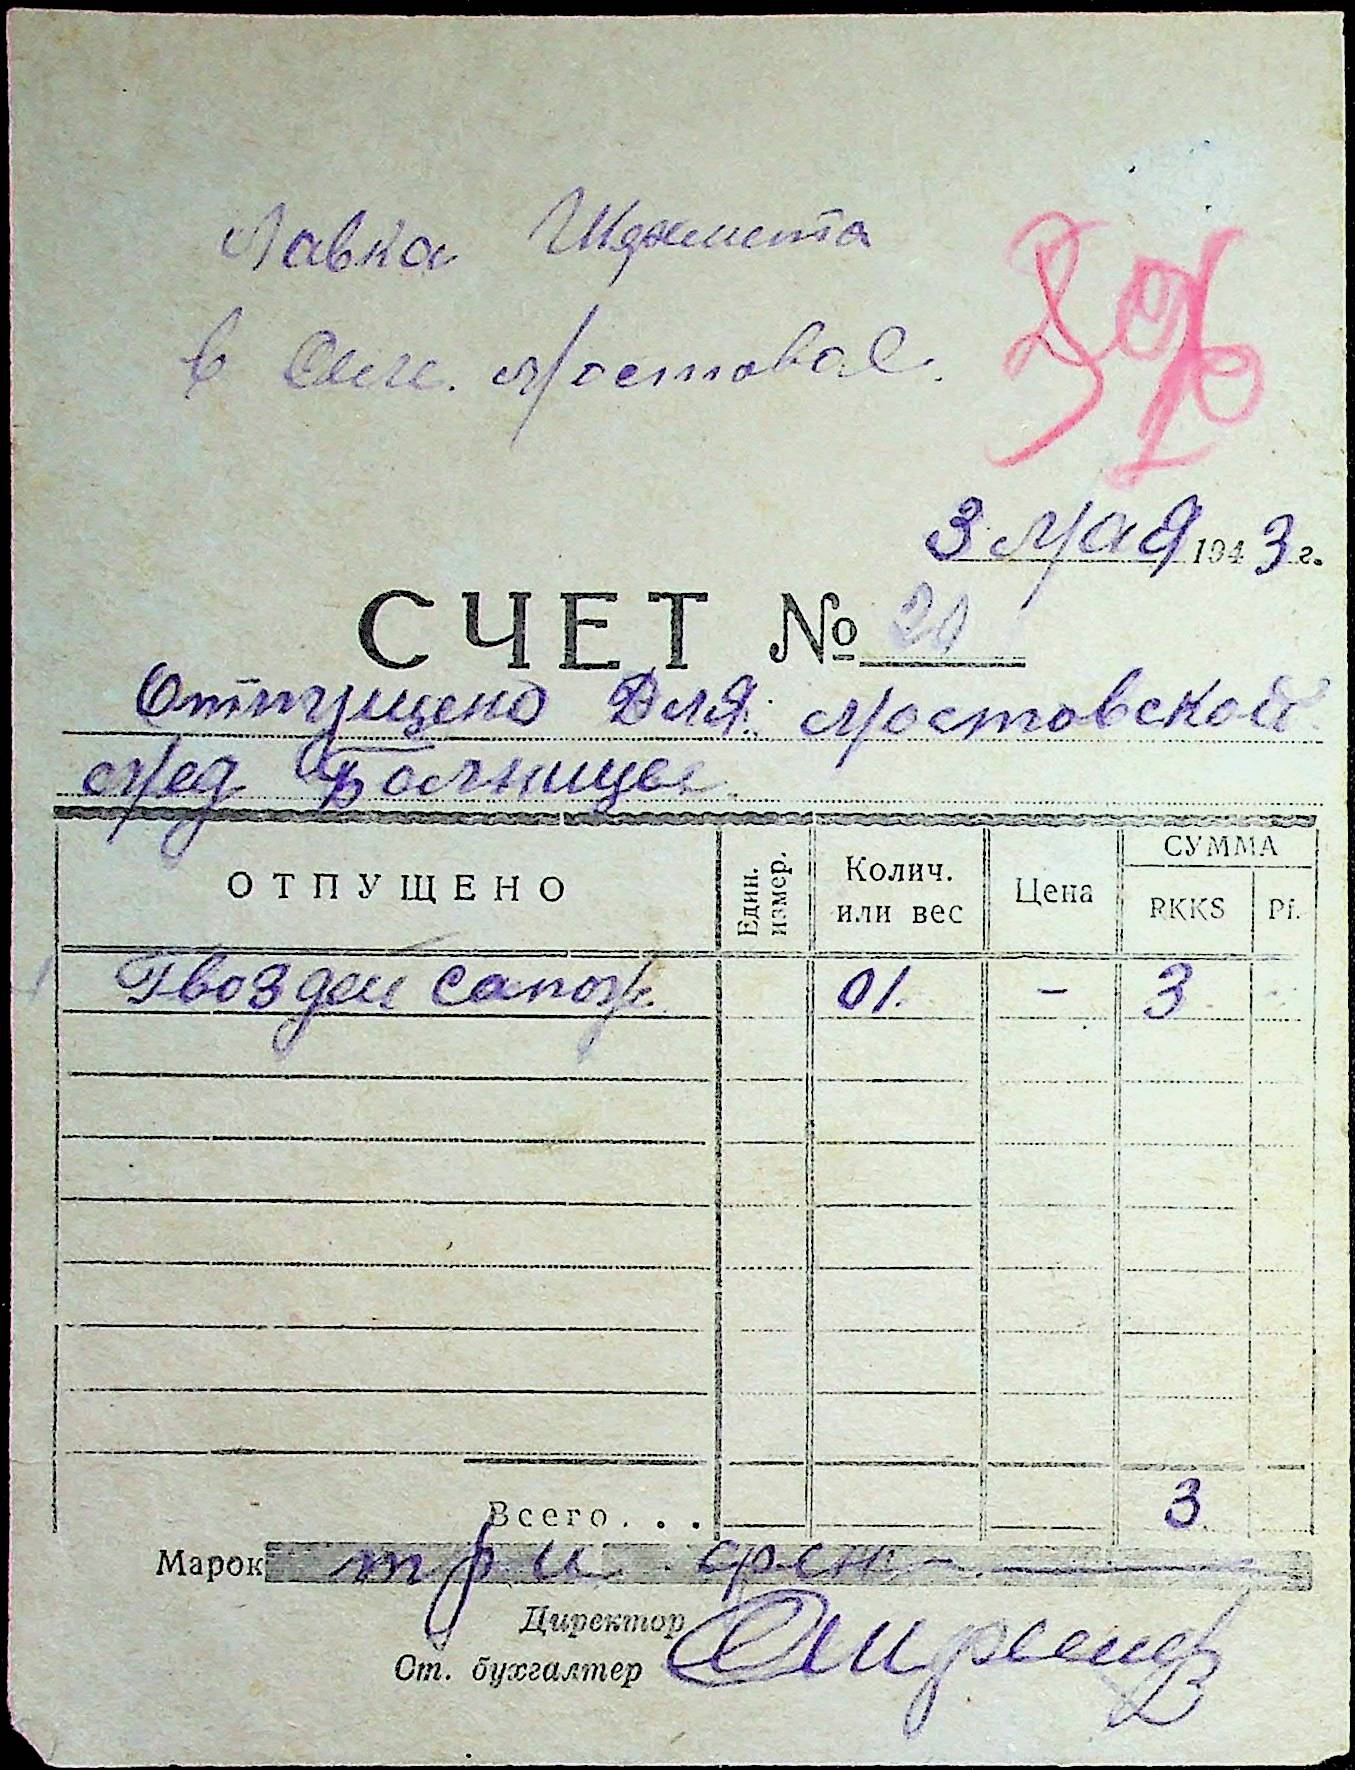 Лавка
в Мостовое.
3 Мая 1943 г.
СЧЕТ № 20
Отпущено Для Мостовской
Мед Болницы
ОТПУЩЕНО
Един. измер.
Колич. или вес
Цена
СУММА
RKKS
Pf.
Гвоздей сапож. 01. - 3
Всего . . . 3
Марок три
Директор
Ст. бухгалтер